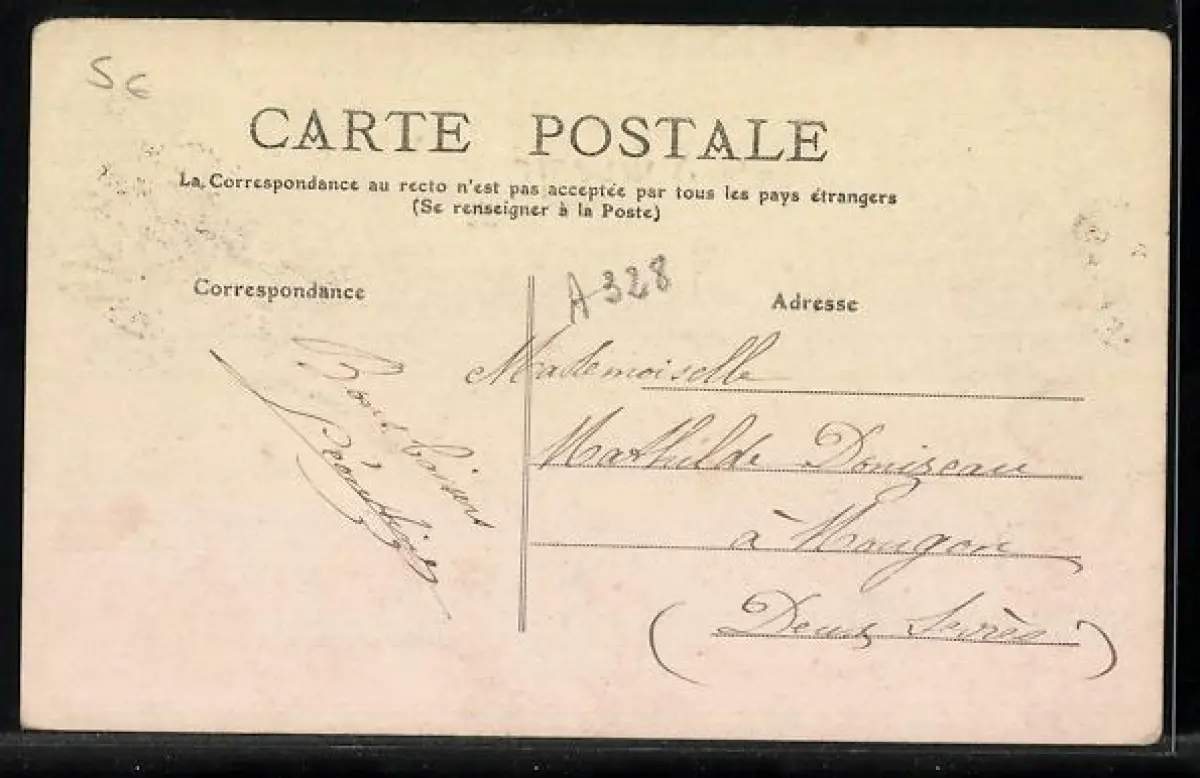 56
CARTE POSTALE
La Correspondance au recto n'est pas acceptée par tous les pays étrangers
(Se renseigner à la Poste)
A328
Correspondance
Bons baisers
Adresse
Mademoiselle
Mathilde Donizeau
à Mougon
(Deux Sèvres)